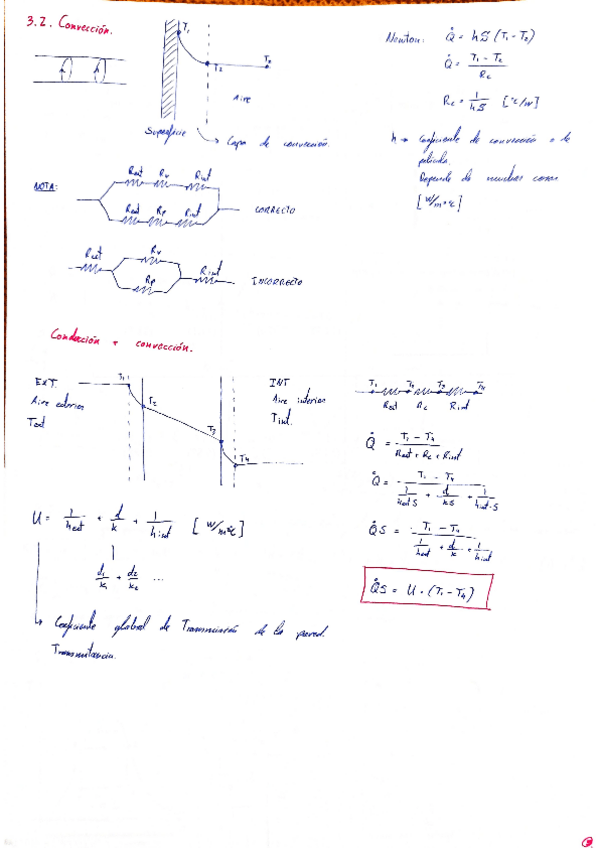 3.2. Convección.
T₁
T₂
T₂
Aire
Superficie
Capa de convección.
Newton: Q̇ = h S (T₁ - T₂)
Q̇ = (T₁ - T₂) / Rc
Rc = 1 / hS [°C/W]
h → Coeficiente de convección o de
película.
Depende de muchas cosas
[W/m²°C]
NOTA:
Rext Rv Rint
Rext Rp Rint
CORRECTO
Rext Rv Rint
Rp
INCORRECTO
Conducción + convección.
EXT.
Aire exterior
Text
T₁
T₂
T₃
T₄
INT
Aire interior
Tint.
T₁ T₂ T₃ T₄
Rext Rc Rint
Q̇ = (T₁ - T₄) / (Rext + Rc + Rint)
Q̇ = (T₁ - T₄) / (1/(hext S) + d/(k S) + 1/(hint · S))
Q̇S = (T₁ - T₄) / (1/hext + d/k + 1/hint)
Q̇S = U · (T₁ - T₄)
U = 1/hext + d/k + 1/hint [W/m²°C]
d₁/k₁ + d₂/k₂ ...
Coeficiente global de Transmisión de la pared.
Transmitancia.